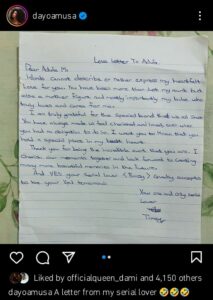 dayoamusa
Love letter To Adufe
Dear Adufe Mi
Words cannot describe or neither express my heartfelt
Love for you. You have been more than Just my aunt but
also a mother figure and mostly importantly my babe who
truly loves and cares for me.
I am truly grateful for the special bond that we all share
You have always made us feel cherished and loved even when
you had no obligation to do so. I want you to know that you
hold a special place in my heart.
Thank you for being the incredible aunt that you are. I
Cherish our memories together and look forward to creating
many more beautiful memories in the future.
And YES your serial lover accepts
to be your
You one and only serial
Lover
Liked by officialqueen_dami and 4,150 others
dayoamusa A letter from my serial lover 🤣🤣🤣